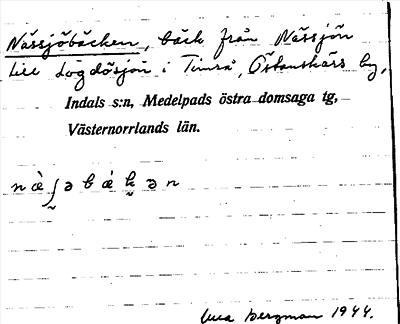 Nässjöbäcken, bäck från Nässjön
till Lögdösjön i Timrå, Östanskärs by,
Indals s:n, Medelpads östra domsaga tg,
Västernorrlands län.
Bergman 1944.